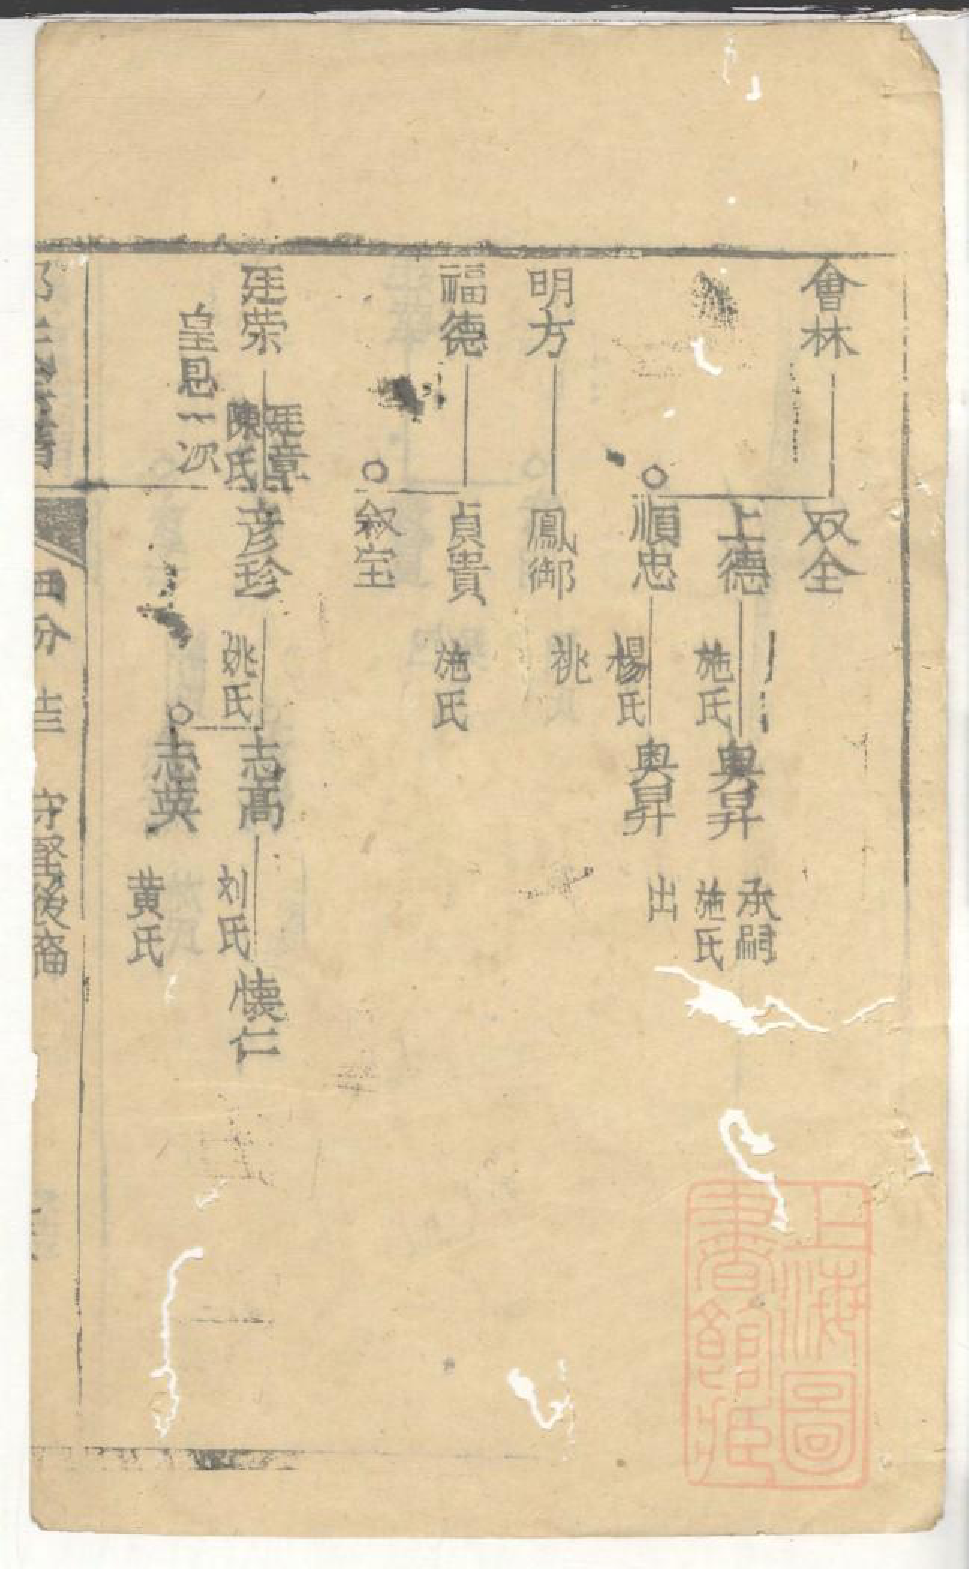 會林
双全
上德
施氏
奧昇
承嗣
施氏
順忠
楊氏
奧昇
出
明方
鳳御
祧
福德
貞貴
施氏
叙宝
廷荣
廷章
陳氏
皇恩一次
彦珍
姚氏
志高
刘氏
懐仁
志英
黄氏
四分
守堅後裔
上海圖書館藏